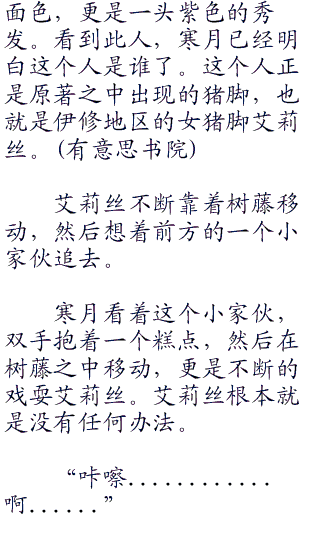 面色，更是一头紫色的秀
发。看到此人，寒月已经明
白这个人是谁了。这个人正
是原著之中出现的猪脚，也
就是伊修地区的女猪脚艾莉
丝。(有意思书院)
艾莉丝不断靠着树藤移
动，然后想着前方的一个小
家伙追去。
寒月看着这个小家伙，
双手抱着一个糕点，然后在
树藤之中移动，更是不断的
戏耍艾莉丝。艾莉丝根本就
是没有任何办法。
“咔嚓............
啊......”